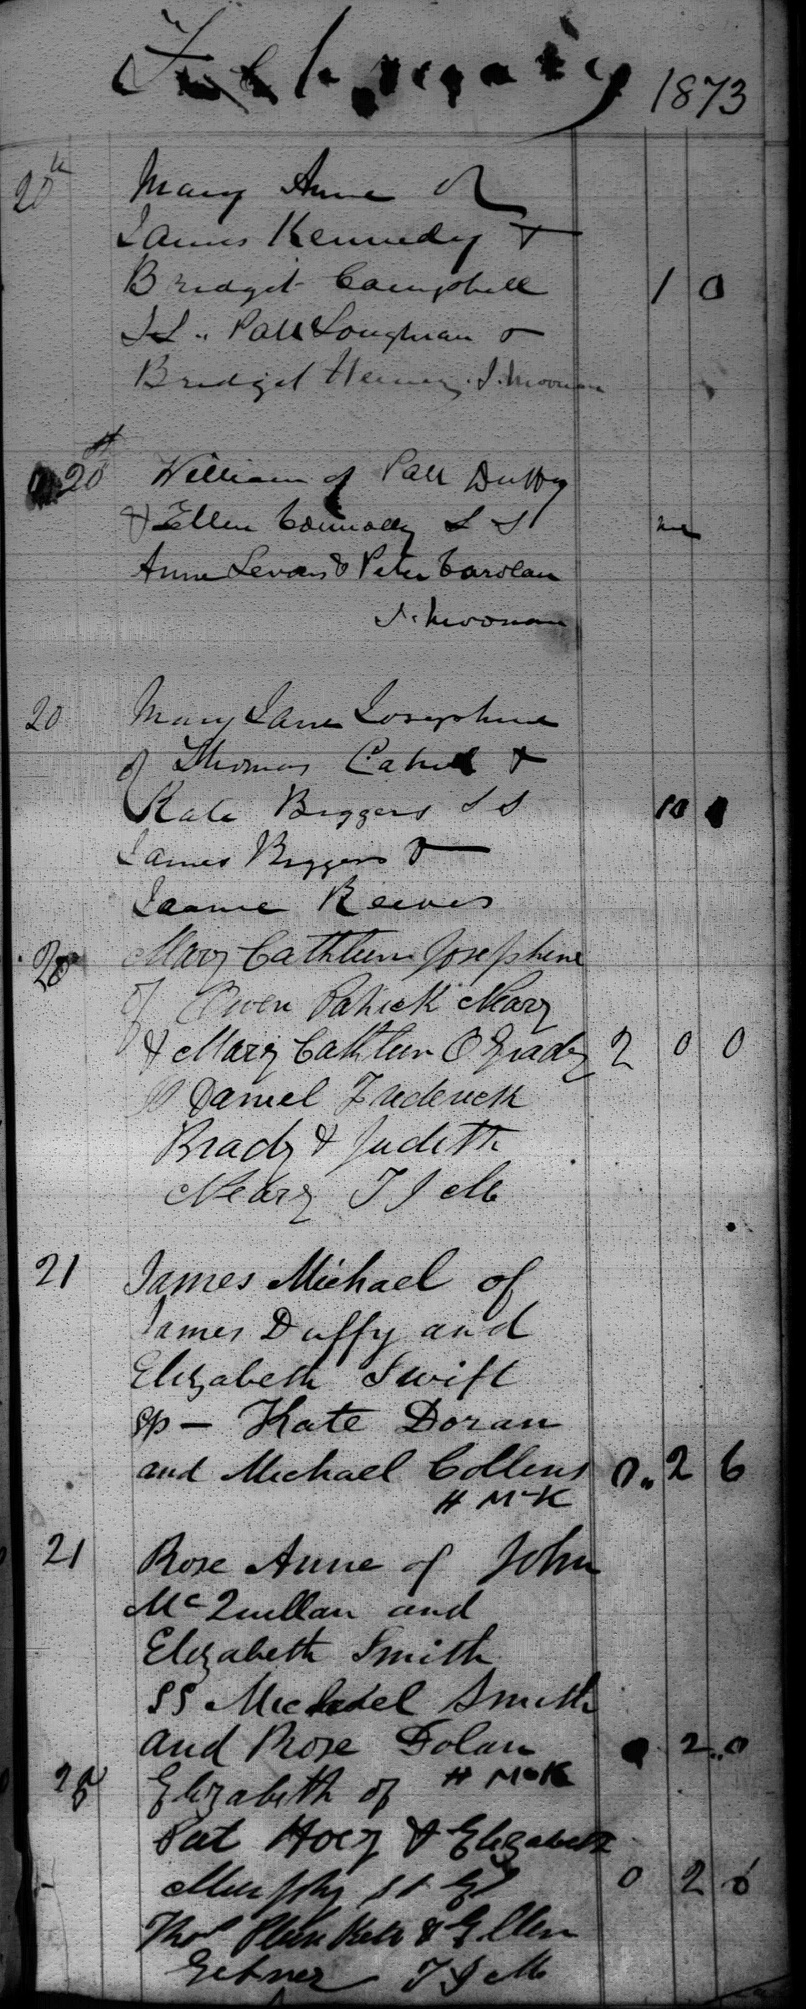 February 1873
20th Mary Anne of
James Kennedy &
Bridget Campbell 1 0
SS.. Patt Loughran &
Bridget J. Moonan
20th William of Patt Duffy
& Ellen Connolly S S
Anne Levans & Peter Carolan
J. Moonan
20 Mary Jane Josephine
of Thomas &
Kate Biggers S S 10
James Biggers &
Reeves
20 Mary Cathleen Josephine
of Owen Patrick Neary
& Mary Cathleen O Grady 2 0 0
SS Daniel Frederick
Brady & Judith
Neary T J M
21 James Michael of
James Duffy and
Elizabeth Swift
Sp – Kate Doran
and Michael Collins 0.. 2 6
H McK
21 Rose Anne of John
McQuillan and
Elizabeth Smith
SS Michael Smith
and Rose Dolan 2..0
H McK
25 Elizabeth of
Pat Hoey & Elizabeth
Murphy 0 2 6
Thos Plunkett & Ellen
T J M